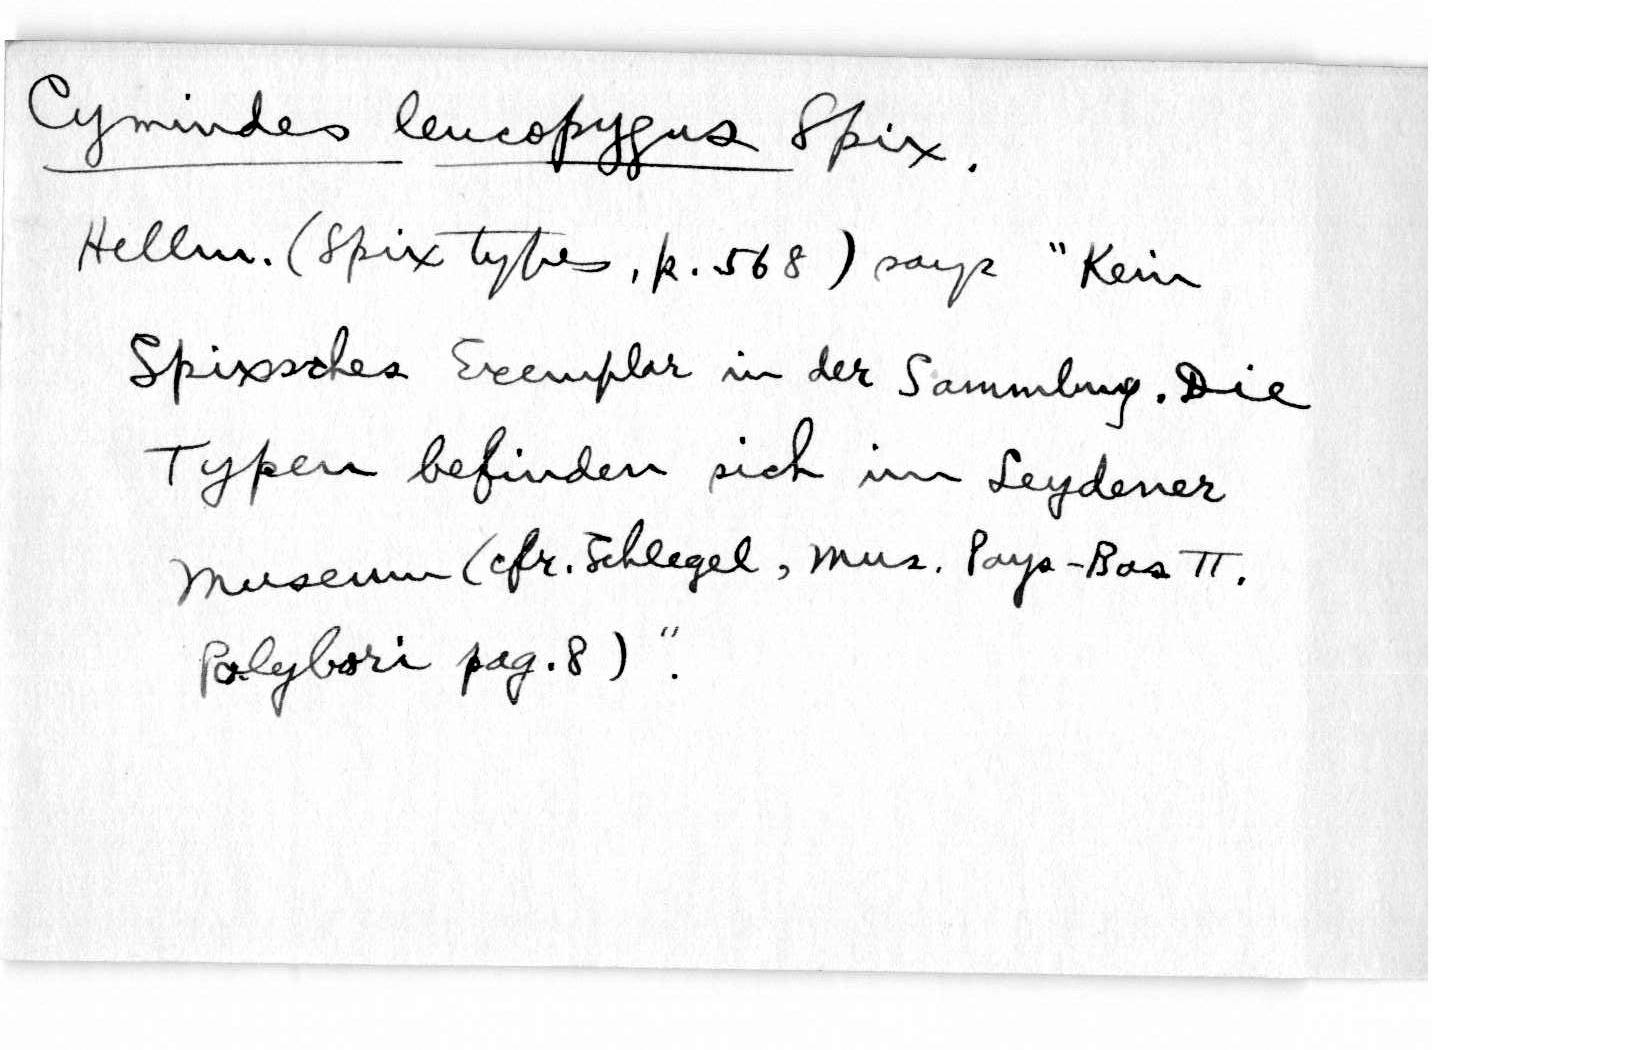 Cymindes leucopygus Spix.
Hellm. (Spix types, p. 568) says "Kein
Spixsches Exemplar in der Sammlung. Die
Typen befinden sich im Leydener
Museum (cfr. Schlegel, Mus. Pays-Bas II.
Polybori pag. 8)".